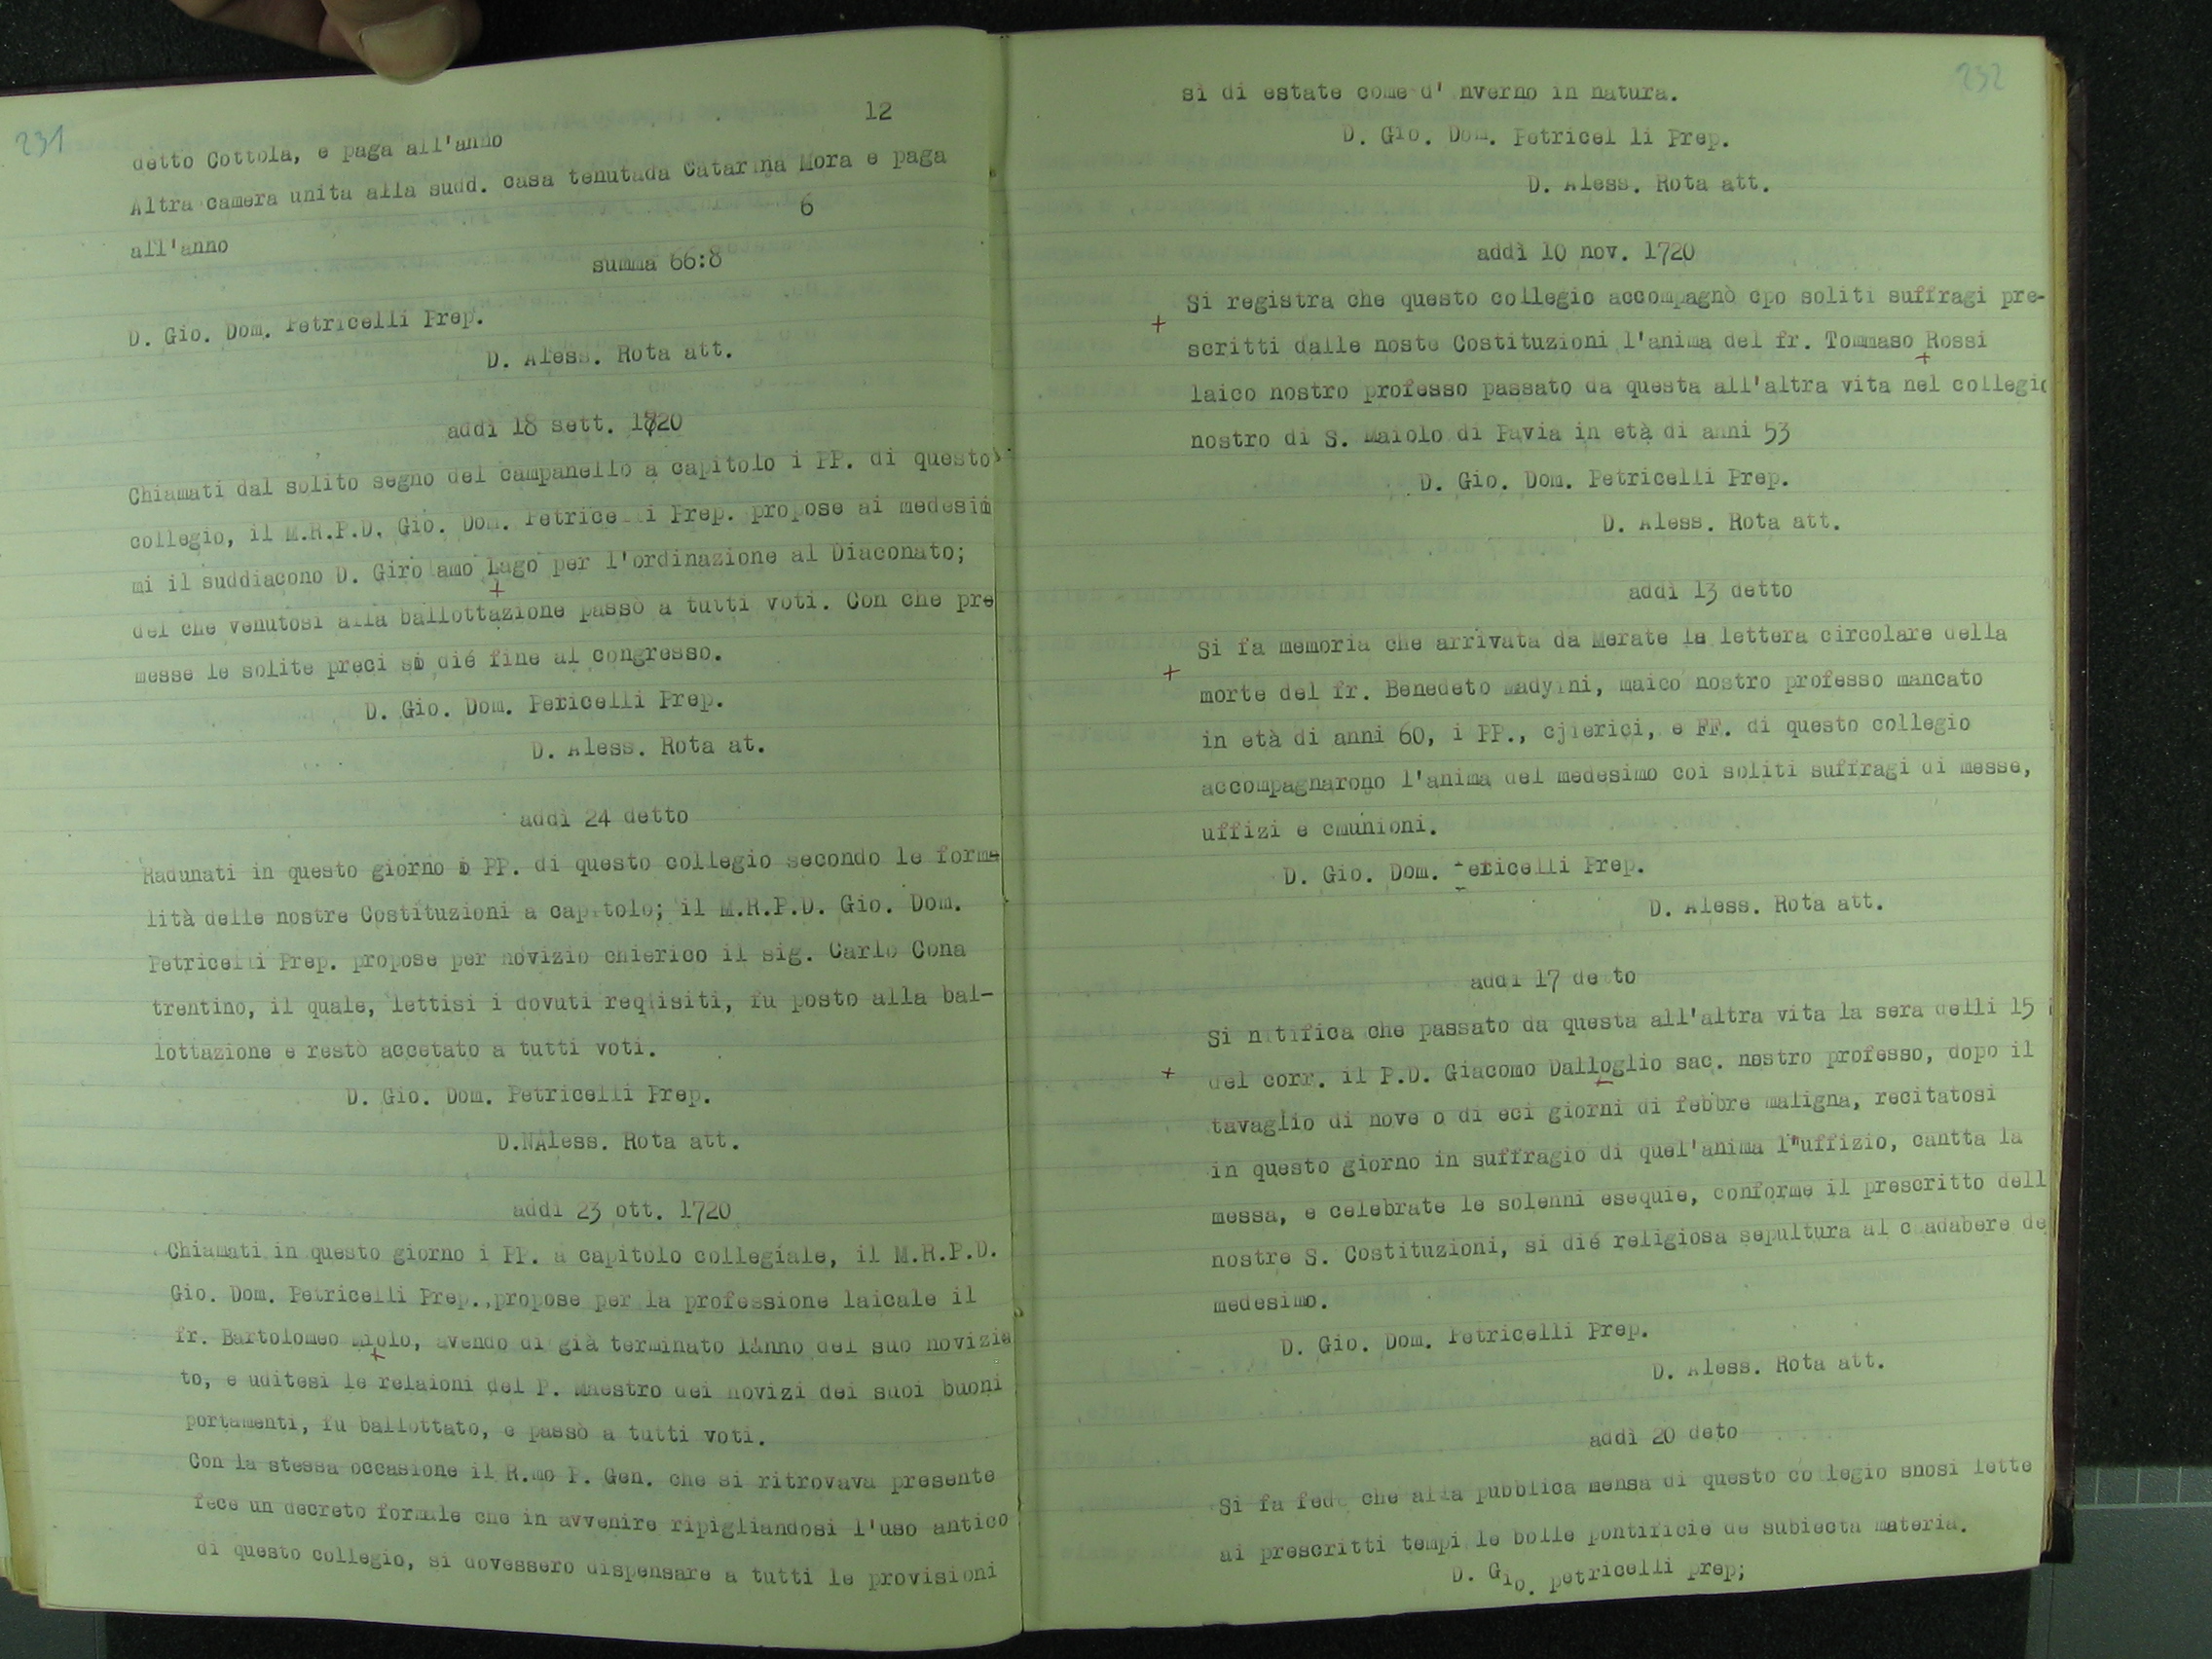 231
12
detto Cottola, e paga all'anno
Altra camera unita alla sudd. casa tenutada Catarina Mora e paga
6
all'anno
summa 66:8
D. Gio. Dom. Petricelli Prep.
D. Aless. Rota att.
addì 18 sett. 1720
Chiamati dal solito segno del campanello a capitolo i PP. di questo
collegio, il M.R.P.D. Gio. Dom. Petricelli Prep. propose ai medesim
mi il suddiacono D. Girolamo Lago per l'ordinazione al Diaconato;
del che venutosi alla ballottazione passò a tutti voti. Con che pre
messe le solite preci si dié fine al congresso.
D. Gio. Dom. Petricelli Prep.
D. Aless. Rota at.
addì 24 detto
Radunati in questo giorno i PP. di questo collegio secondo le forma
lità delle nostre Costituzioni a capitolo; il M.R.P.D. Gio. Dom.
Petricelli Prep. propose per novizio chierico il sig. Carlo Cona
trentino, il quale, lettisi i dovuti reqisiti, fu posto alla bal-
lottazione e restò accetato a tutti voti.
D. Gio. Dom. Petricelli Prep.
D.NAless. Rota att.
addì 23 ott. 1720
Chiamati in questo giorno i PP. a capitolo collegiale, il M.R.P.D.
Gio. Dom. Petricelli Prep.,propose per la professione laicale il
fr. Bartolomeo Miolo, avendo di già terminato l'anno del suo novizia
to, e uditesi le relaioni del P. Maestro dei novizi dei suoi buoni
portamenti, fu ballottato, e passò a tutti voti.
Con la stessa occasione il R.mo P. Gen. che si ritrovava presente
fece un decreto formale che in avvenire ripigliandosi l'uso antico
di questo collegio, si dovessero dispensare a tutti le provisioni
232
sì di estate come d' nverno in natura.
D. Gio. Dom. Petricel li Prep.
D. Aless. Rota att.
addì 10 nov. 1720
Si registra che questo collegio accompagnò cpo soliti suffragi pre-
scritti dalle noste Costituzioni l'anima del fr. Tommaso Rossi
laico nostro professo passato da questa all'altra vita nel collegio
nostro di S. Maiolo di Pavia in età di anni 53
D. Gio. Dom. Petricelli Prep.
D. Aless. Rota att.
addì 13 detto
Si fa memoria che arrivata da Merate la lettera circolare della
morte del fr. Benedeto Madyini, maico nostro professo mancato
in età di anni 60, i PP., cjierici, e FF. di questo collegio
accompagnarono l'anima del medesimo coi soliti suffragi di messe,
uffizi e cmunioni.
D. Gio. Dom. Petricelli Prep.
D. Aless. Rota att.
addì 17 de to
Si n tifica che passato da questa all'altra vita la sera delli 15
del corr. il P.D. Giacomo Dalloglio sac. nostro professo, dopo il
tavaglio di nove o di eci giorni di febbre maligna, recitatosi
in questo giorno in suffragio di quel'anima l"uffizio, cantta la
messa, e celebrate le solenni esequie, conforme il prescritto dell
nostre S. Costituzioni, si dié religiosa sepultura al c adabere de
medesimo.
D. Gio. Dom. Petricelli Prep.
D. Aless. Rota att.
addì 20 deto
Si fa fede che alla pubblica mensa di questo collegio snosi lette
ai prescritti tempi le bolle pontificie de subiecta materia.
D. Gio. petricelli prep;